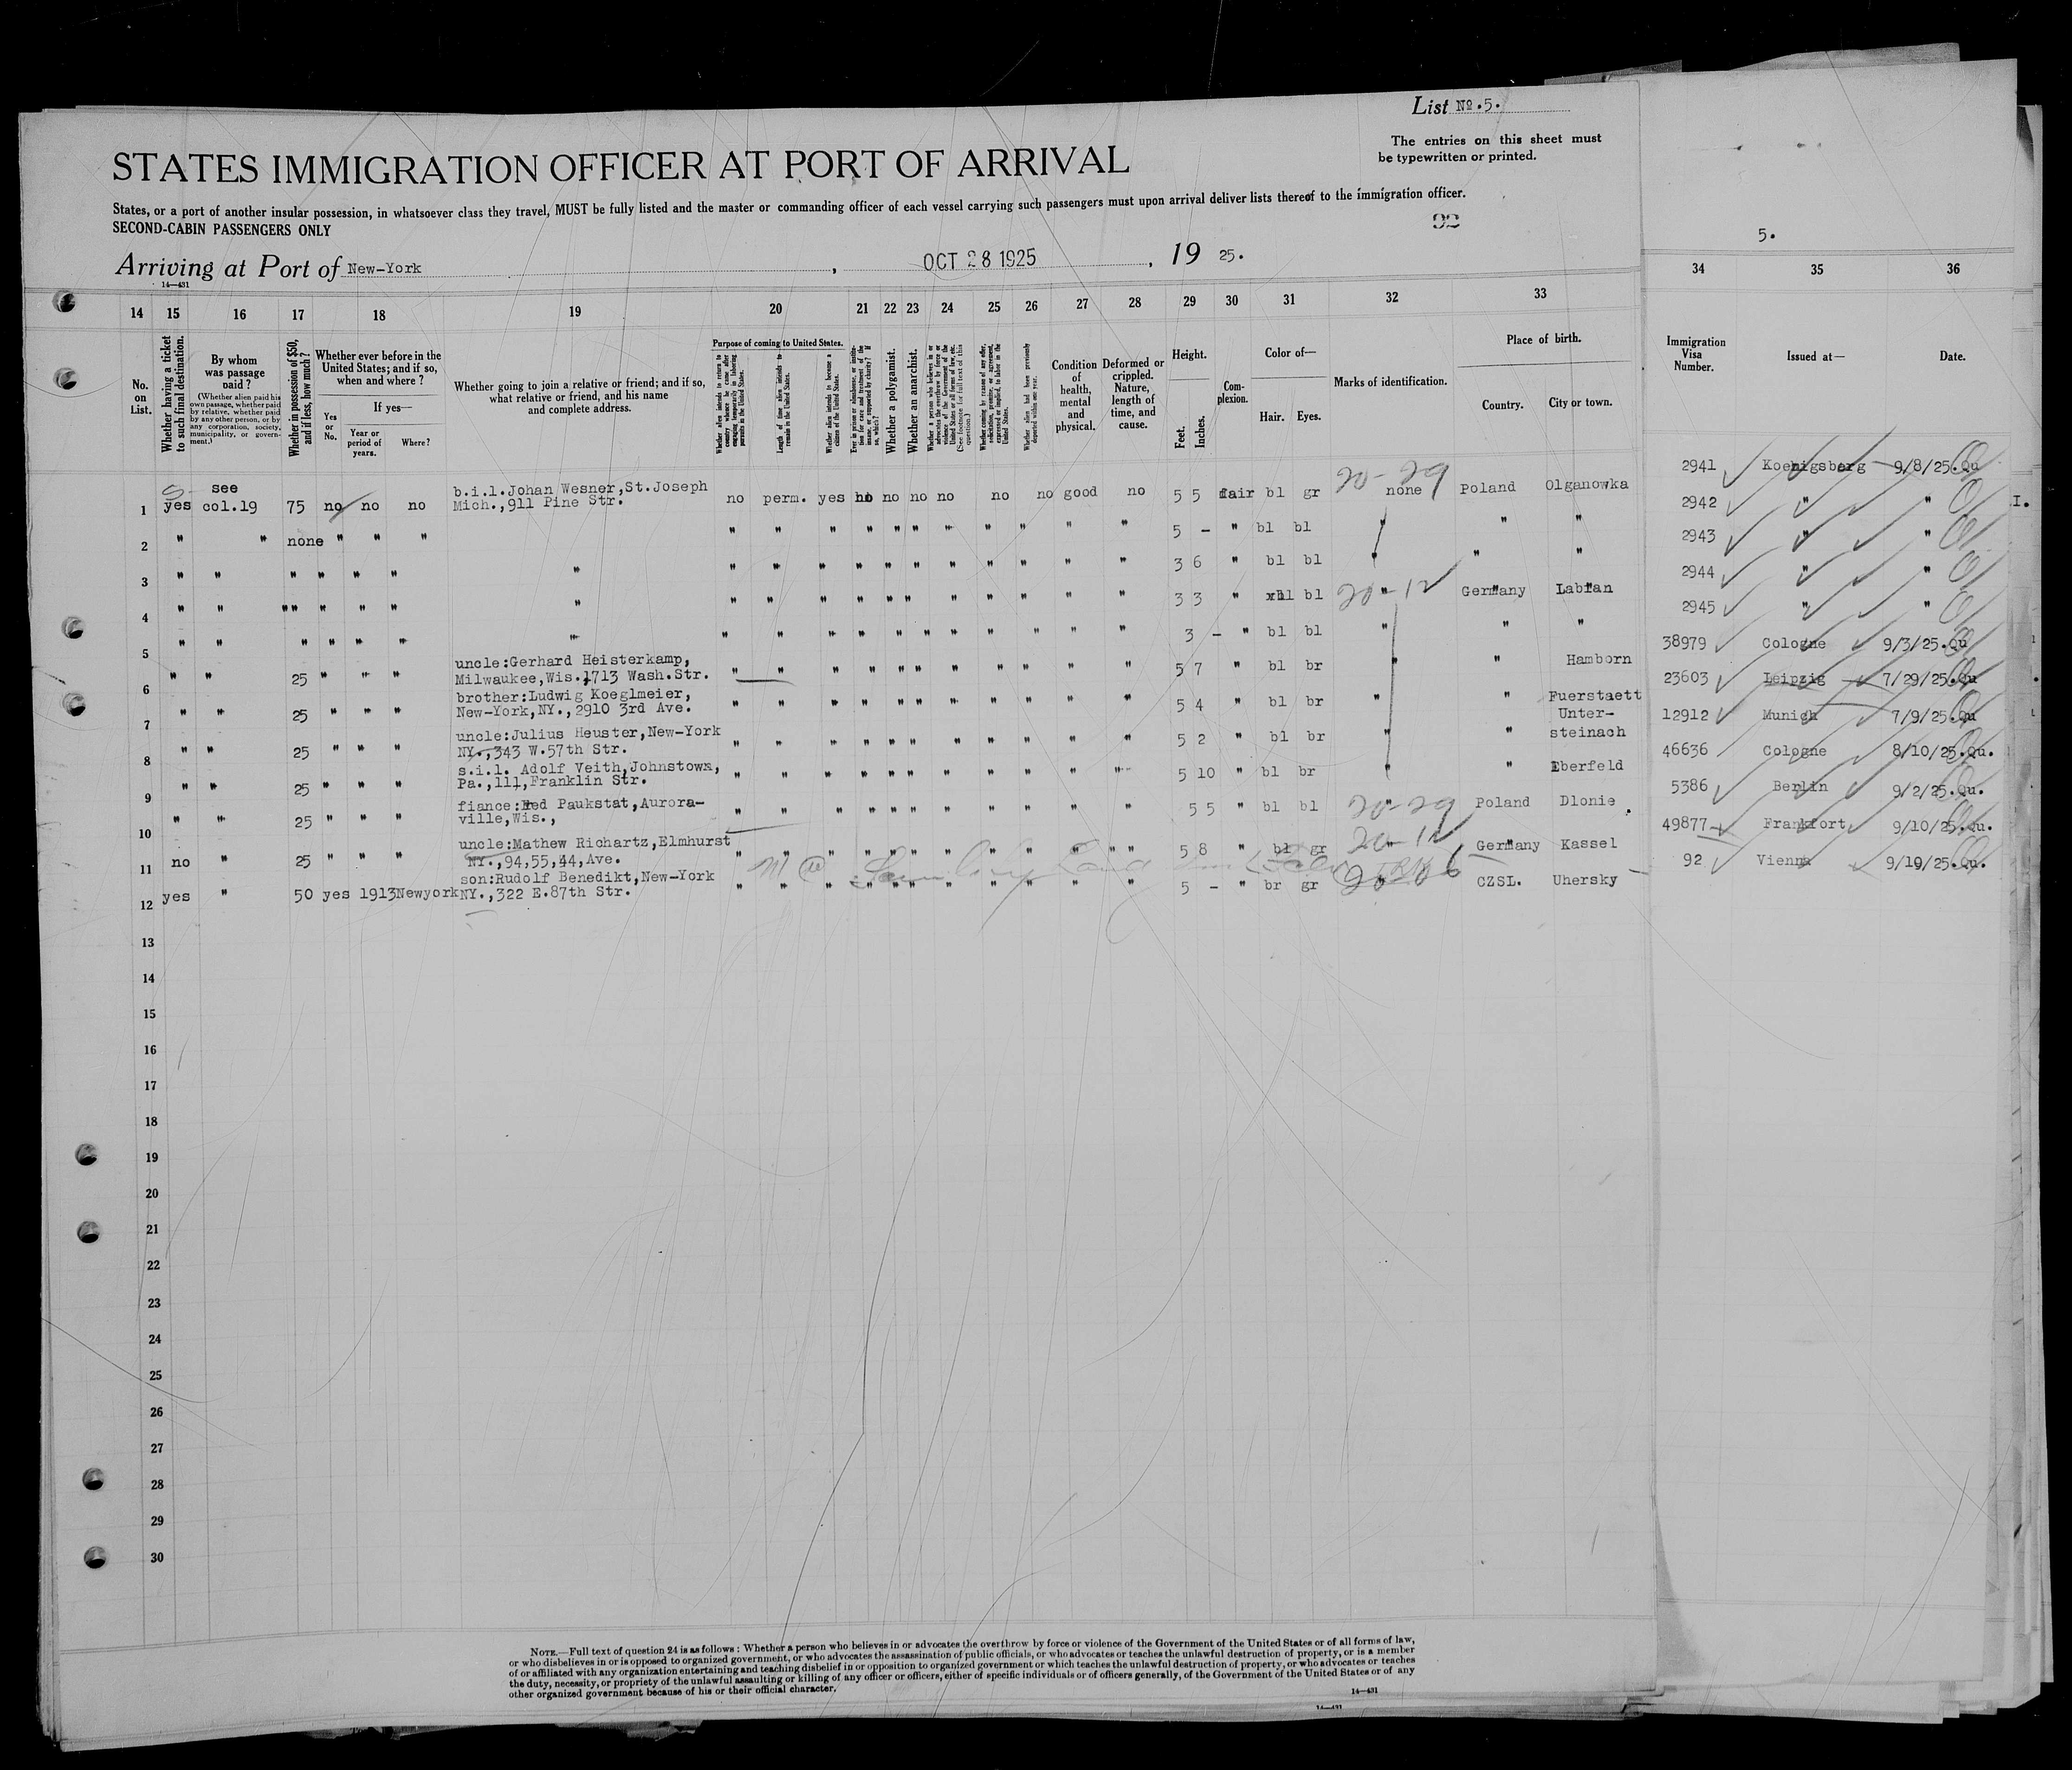 List No. 5.
The entries on this sheet must
be typewritten or printed.
STATES IMMIGRATION OFFICER AT PORT OF ARRIVAL
States, or a port of another insular possession, in whatsoever class they travel, MUST be fully listed and the master or commanding officer of each vessel carrying such passengers must upon arrival deliver lists thereof to the immigration officer.
SECOND-CABIN PASSENGERS ONLY
92
5.
Arriving at Port of New-York, OCT 28 1925, 19 25.
14—431
14 15 16 17 18 19 20 21 22 23 24 25 26 27 28 29 30 31 32 33 34 35 36
No. on List.
Whether having a ticket to such final destination.
By whom was passage paid?
(Whether alien paid his own passage, whether paid by relative, whether paid by any other person, or by any corporation, society, municipality, or government.)
Whether in possession of $50, and if less, how much?
Whether ever before in the United States; and if so, when and where?
Yes or No.
If yes—
Year or period of years.
Where?
Whether going to join a relative or friend; and if so, what relative or friend, and his name and complete address.
Purpose of coming to United States.
Whether alien intends to return to country whence he came after engaging temporarily in laboring pursuits in the United States.
Length of time alien intends to remain in the United States.
Whether alien intends to become a citizen of the United States.
Ever in prison or almshouse, or institution for care and treatment of the insane, or supported by charity? If so, which?
Whether a polygamist.
Whether an anarchist.
Whether a person who believes in or advocates the overthrow by force or violence of the Government of the United States or all forms of law, etc. (See footnote for full text of this question.)
Whether coming by reason of any offer, solicitation, promise, or agreement, expressed or implied, to labor in the United States.
Whether alien had been previously deported within one year.
Condition of health, mental and physical.
Deformed or crippled. Nature, length of time, and cause.
Height.
Feet. Inches.
Complexion.
Color of—
Hair. Eyes.
Marks of identification.
Place of birth.
Country. City or town.
Immigration Visa Number.
Issued at—
Date.
1 yes see col.19 75 no no no b.i.l.Johan Wesner,St.Joseph Mich.,911 Pine Str. no perm. yes no no no no no no good no 5 5 fair bl gr 20-29 none Poland Olganowka 2941 Koenigsberg 9/8/25.Qu
2 " " none " " " " " " " " " " " " " " " 5 - " bl bl " " " 2942 " "
3 " " " " " " " " " " " " " " " " " " 3 6 " bl bl " " " 2943 " "
4 " " "" " " " " " " " " " " " " " " " 3 3 " bl bl 20-12 " Germany Labian 2944 " "
5 " " " " " " " " " " " " " " " " " " 3 - " bl bl " " " 2945 " "
6 " " 25 " " " uncle:Gerhard Heisterkamp, Milwaukee,Wis.,1713 Wash.Str. " " " " " " " " " " " 5 7 " bl br " " Hamborn 38979 Cologne 9/3/25.Qu
7 " " 25 " " " brother:Ludwig Koeglmeier, New-York,NY.,2910 3rd Ave. " " " " " " " " " " " 5 4 " bl br " " Fuerstaett 23603 Leipzig 7/29/25.Qu
8 " " 25 " " " uncle:Julius Heuster,New-York NY.,343 W.57th Str. " " " " " " " " " " " 5 2 " bl br " " Unter-steinach 12912 Munich 7/9/25.Qu
9 " " 25 " " " s.i.l. Adolf Veith,Johnstown, Pa.,111,Franklin Str. " " " " " " " " " " " 5 10 " bl br " " Eberfeld 46636 Cologne 8/10/25.Qu.
10 " " 25 " " " fiance: Paukstat,Aurora-ville,Wis., " " " " " " " " " " " 5 5 " bl bl 20-29 " Poland Dlonie 5386 Berlin 9/2/25.Qu.
11 no " 25 " " " uncle:Mathew Richartz,Elmhurst NY.,94,55,44,Ave. " " " " " " " " " " " " 5 8 " bl gr 20-12 " Germany Kassel 49877 Frankfort 9/10/25.Qu.
12 yes " 50 yes 1913 Newyork son:Rudolf Benedikt,New-York NY.,322 E.87th Str. " " " " " " " " " " " 5 - " br gr 20-06 " CZSL. Uhersky 92 Vienna 9/19/25.Qu.
13
14
15
16
17
18
19
20
21
22
23
24
25
26
27
28
29
30
NOTE.—Full text of question 24 is as follows: Whether a person who believes in or advocates the overthrow by force or violence of the Government of the United States or of all forms of law,
or who disbelieves in or is opposed to organized government, or who advocates the assassination of public officials, or who advocates or teaches the unlawful destruction of property, or is a member
of or affiliated with any organization entertaining and teaching disbelief in or opposition to organized government or which teaches the unlawful destruction of property, or who advocates or teaches
the duty, necessity, or propriety of the unlawful assaulting or killing of any officer or officers, either of specific individuals or of officers generally, of the Government of the United States or of any
other organized government because of his or their official character.
14—431
14—431